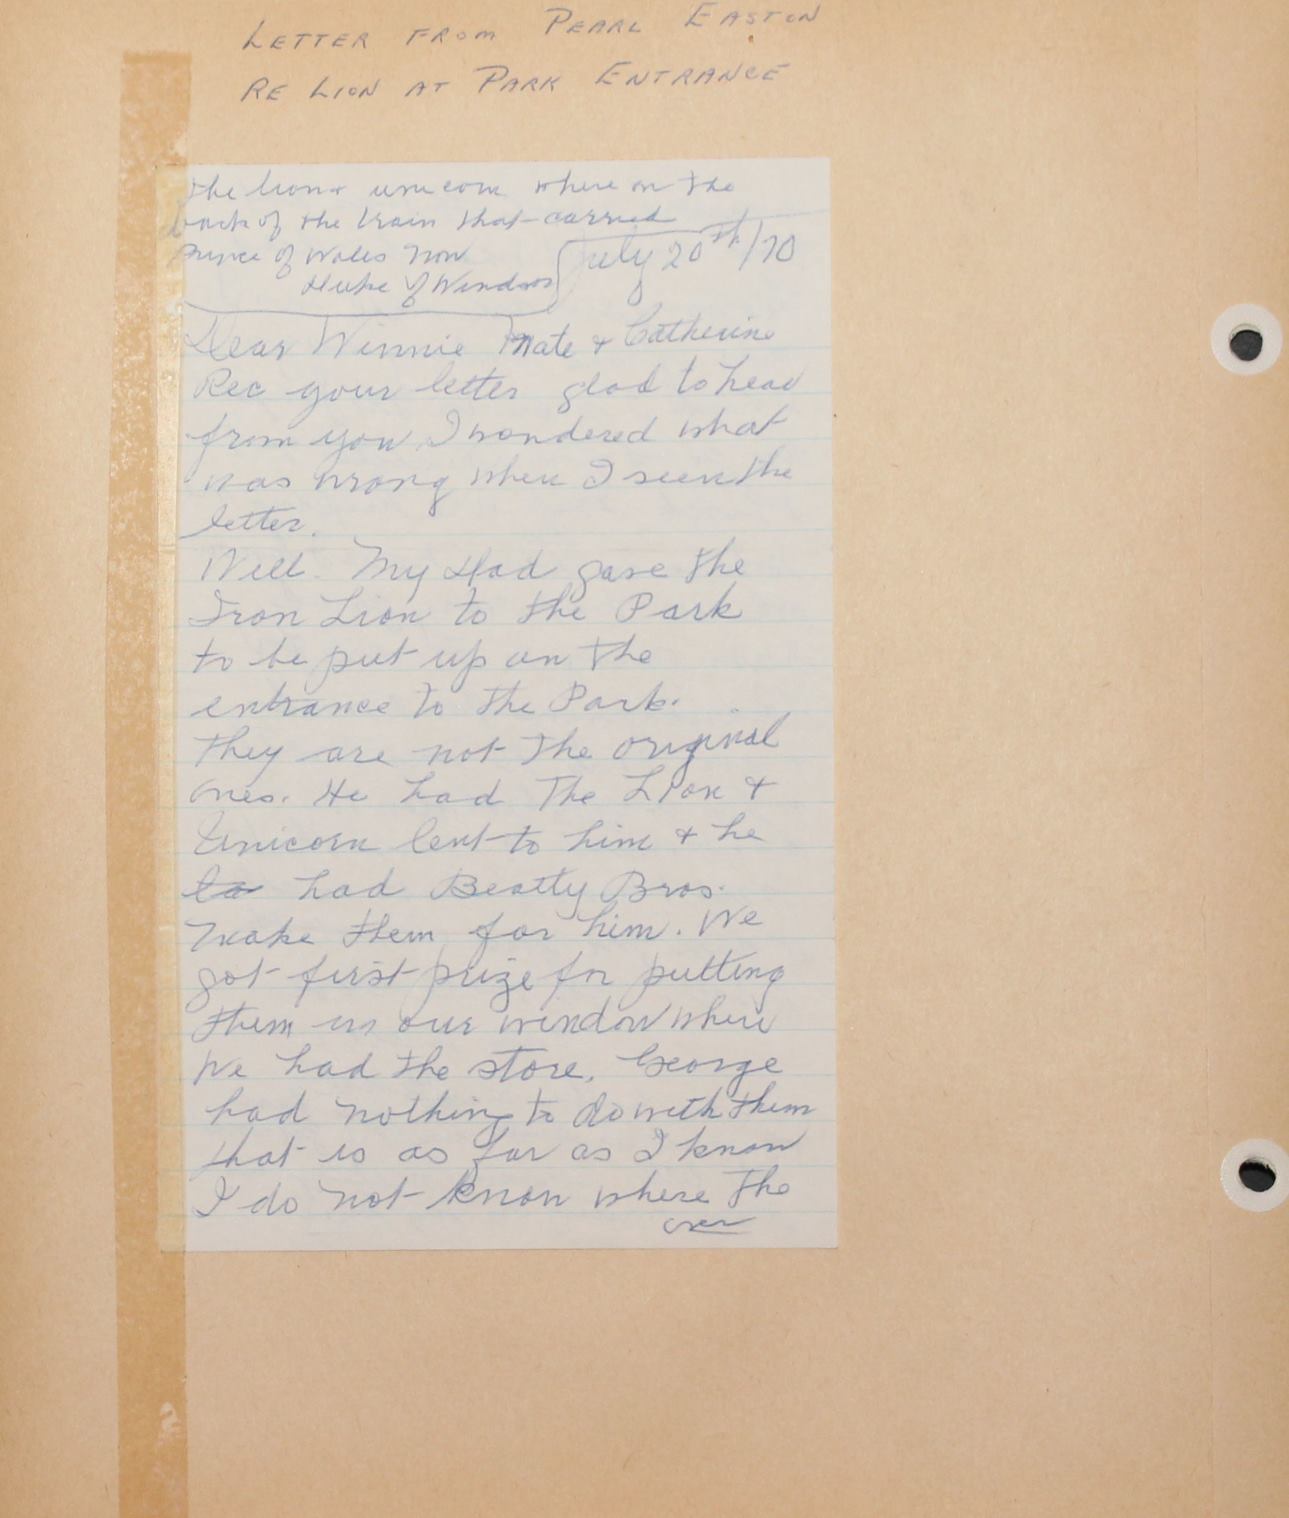 LETTER FROM PEARL EASTON
RE LION AT PARK ENTRANCE
the lion & unicorn where on the
back of the train that carried
Prince of Wales now
Duke of Windsor
July 20th/70
Dear Winnie Nate & Catherine
Rec your letter glad to hear
from you I wondered what
was wrong when I seen the
letter.
Well. My Dad gave the
Iron Lion to the Park
to be put up on the
entrance to the Park.
they are not the original
ones. He had The Lion &
Unicorn lent to him & he
la had Beatty Bros.
make them for him. We
got first prize for putting
them in our window where
we had the store. George
had nothing to do with them
that is as far as I know
I do not know where the
over